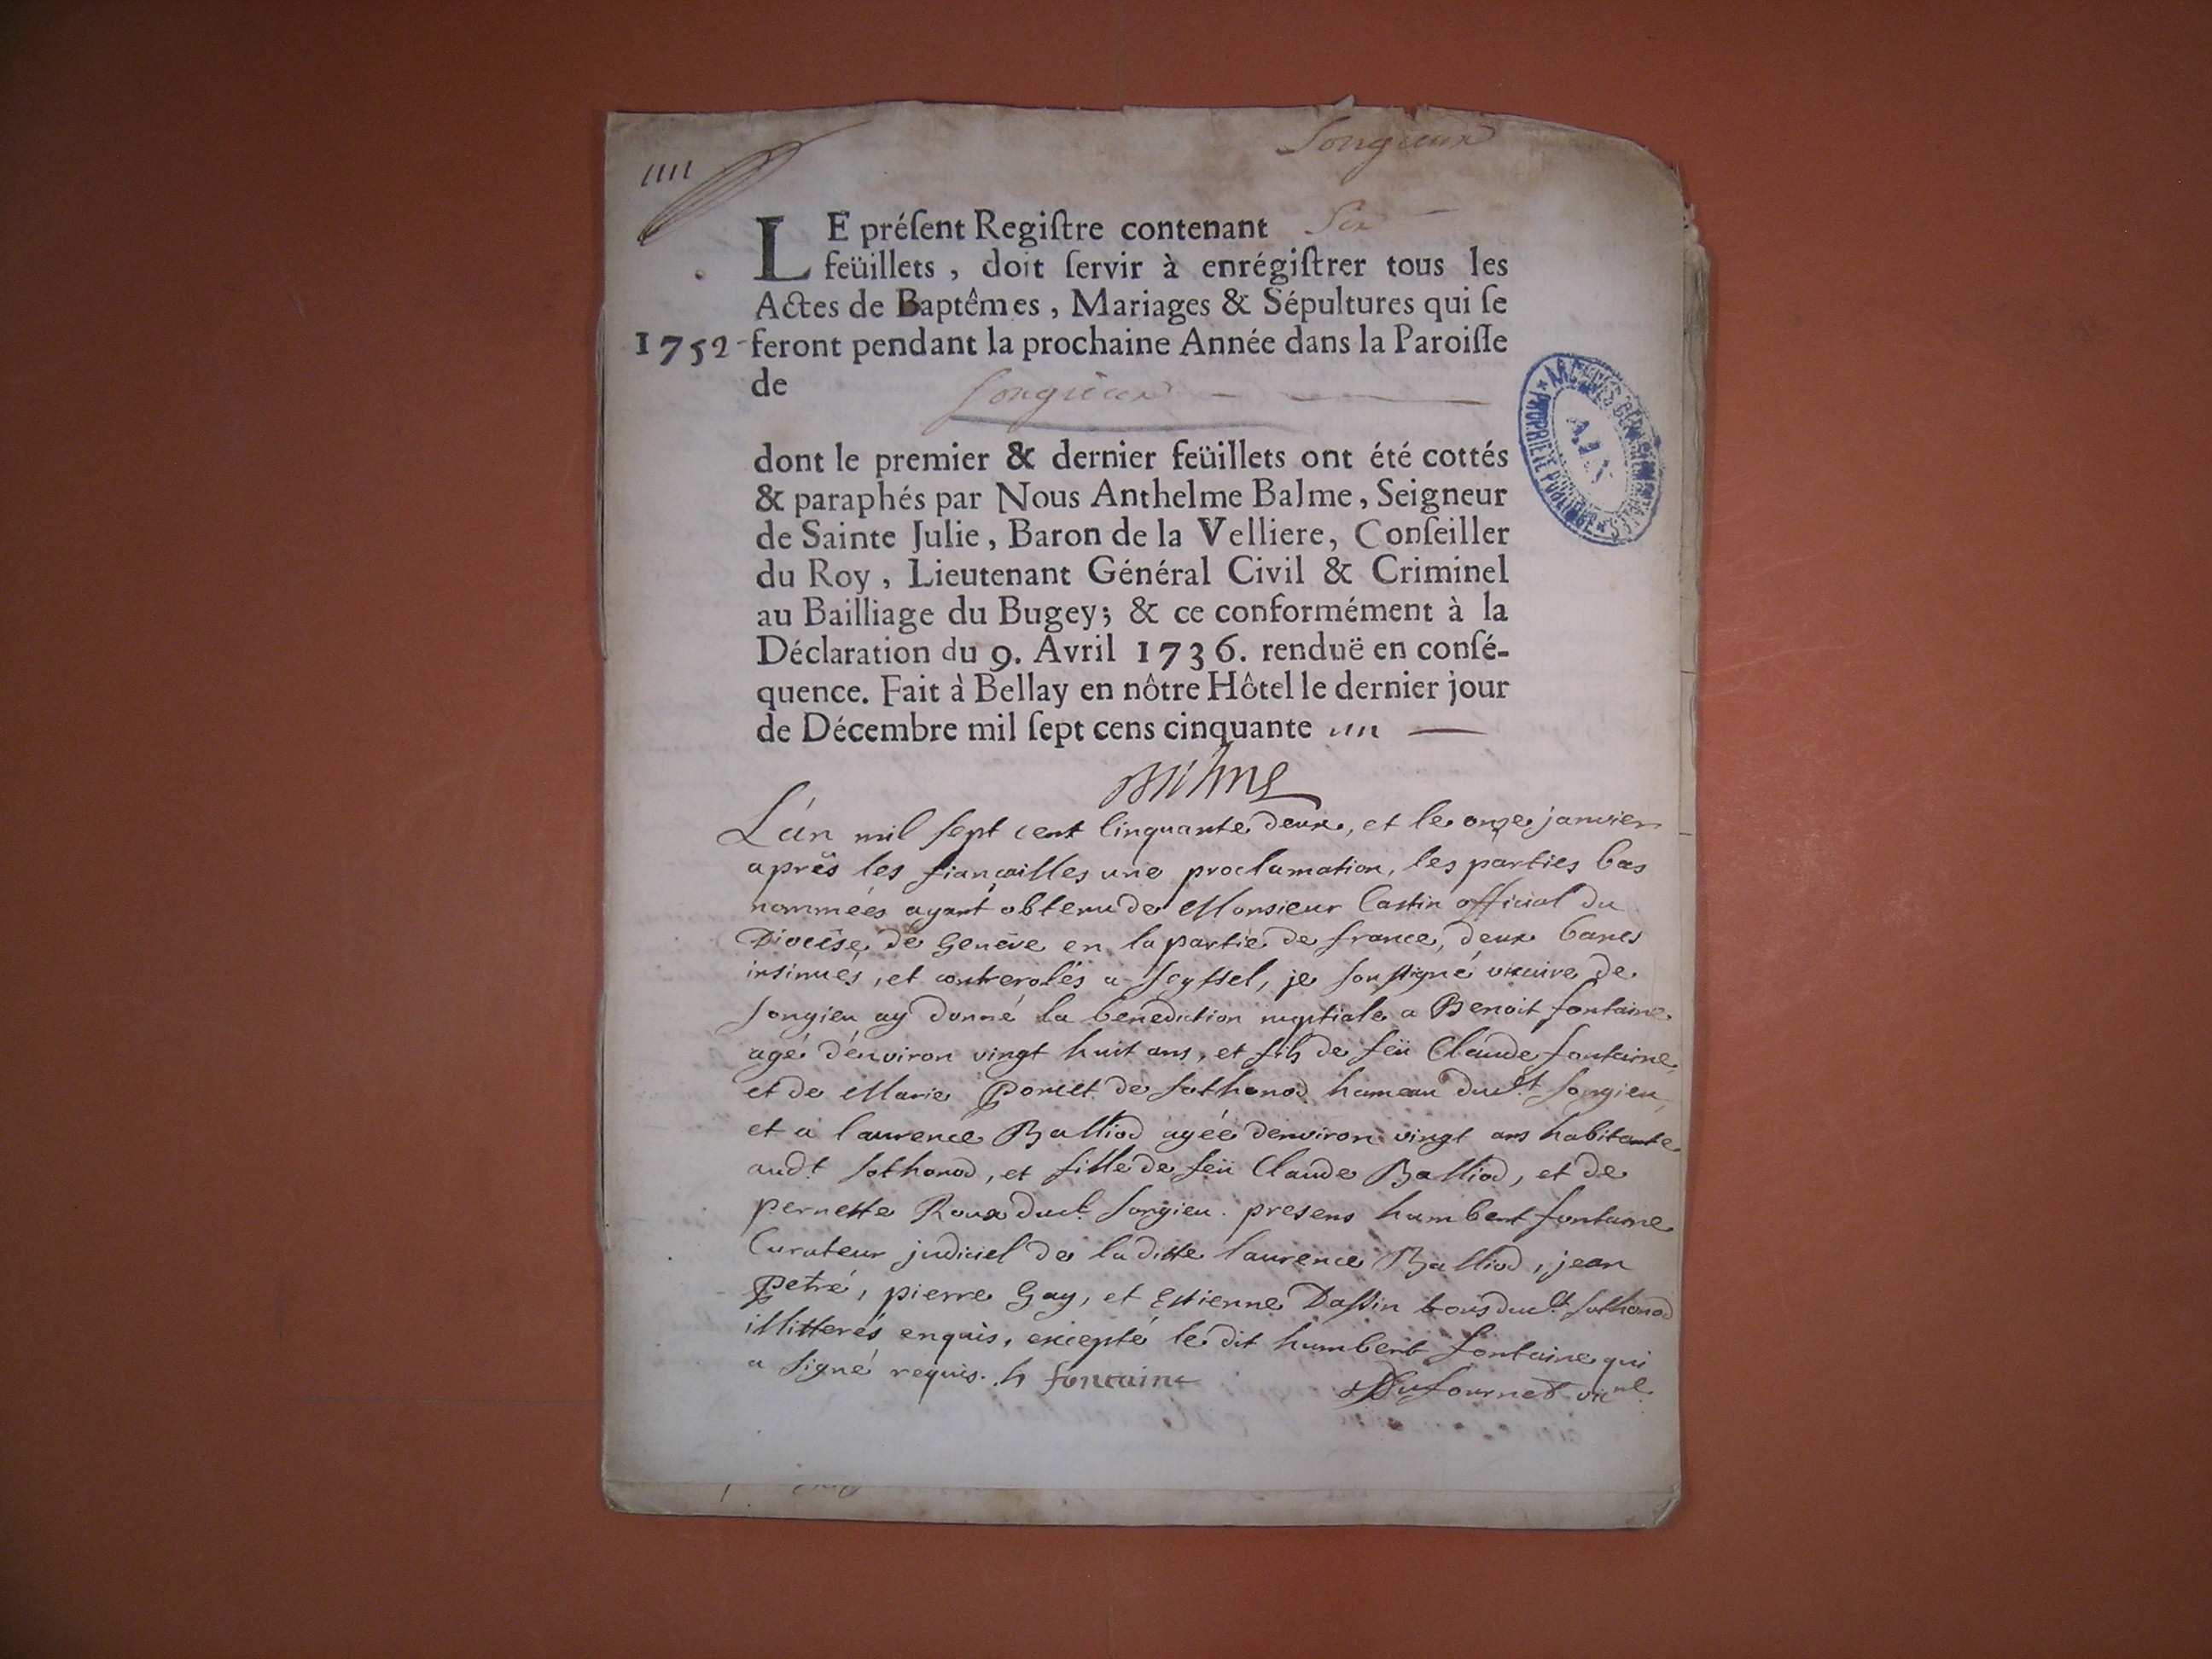 un
Songieux
LE préſent Regiſtre contenant Six
feüillets, doit ſervir à enrégiſtrer tous les
Actes de Baptêmes, Mariages & Sépultures qui ſe
1752 feront pendant la prochaine Année dans la Paroiſſe
de Songieux
dont le premier & dernier feüillets ont été cottés
& paraphés par Nous Anthelme Balme, Seigneur
de Sainte Julie, Baron de la Velliere, Conſeiller
du Roy, Lieutenant Général Civil & Criminel
au Bailliage du Bugey; & ce conformément à la
Déclaration du 9. Avril 1736. renduë en conſé-
quence. Fait à Bellay en nôtre Hôtel le dernier jour
de Décembre mil ſept cens cinquante un
Balme
L'an mil sept cent Cinquante deux, et le onze janvier
après les fiançailles une proclamation, les parties bas
nommées ayant obtenu de Monsieur Castin official du
Diocèse de Genève en la partie de france, deux bancs
insinués, et controrolés a Seyssel, je soussigné vicaire de
Songieu ay donné la benediction nuptiale a Benoit fontaine
agé d'environ vingt huit ans, et fils de feü Claude fontaine
et de Marie Poncet de Sothonod hameau dudt. Songieu
et a laurence Balliod agée denviron vingt ans habitante
audt. Sothonod, et fille de feü Claude Balliod, et de
pernette Roux dudt. Songieu. presens humbert fontaine
Curateur judiciel de la ditte laurence Balliod, jean
Petré, pierre Gay, et Estienne Dassin tous dudt. Sothonod
illitterés enquis, excepté le dit humbert fontaine qui
a signé requis. h fontaine Dufournet vice.
ARCHIVES DÉPARTEMENTALES
AIN
PROPRIÉTÉ PUBLIQUE